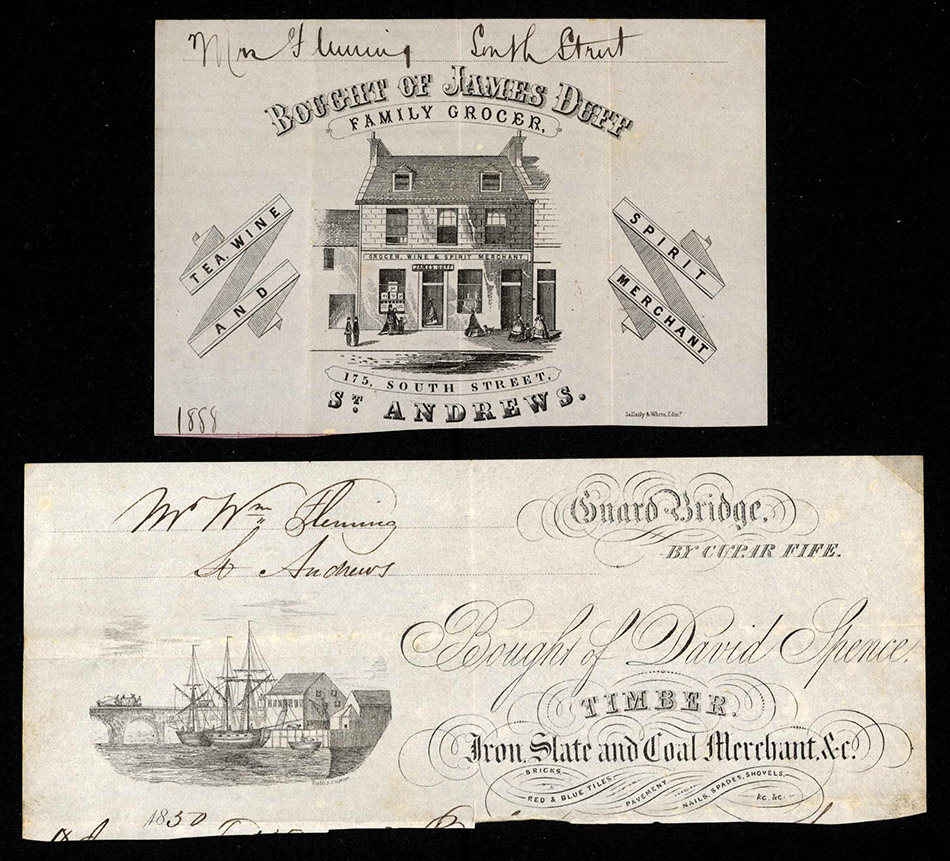 Mrs Fleming South Street
BOUGHT OF JAMES DUFF
FAMILY GROCER,
TEA, WINE
AND
SPIRIT
MERCHANT
GROCER, WINE & SPIRIT MERCHANT.
JAMES DUFF
175, SOUTH STREET,
ST. ANDREWS.
1858
Mr Wm Fleming
St Andrews
Guard Bridge,
BY CUPAR FIFE.
Bought of David Spence.
TIMBER,
Iron, Slate and Coal Merchant, &c.
BRICKS
RED & BLUE TILES,
PAVEMENT,
NAILS, SPADES, SHOVELS,
&c. &c.
1850